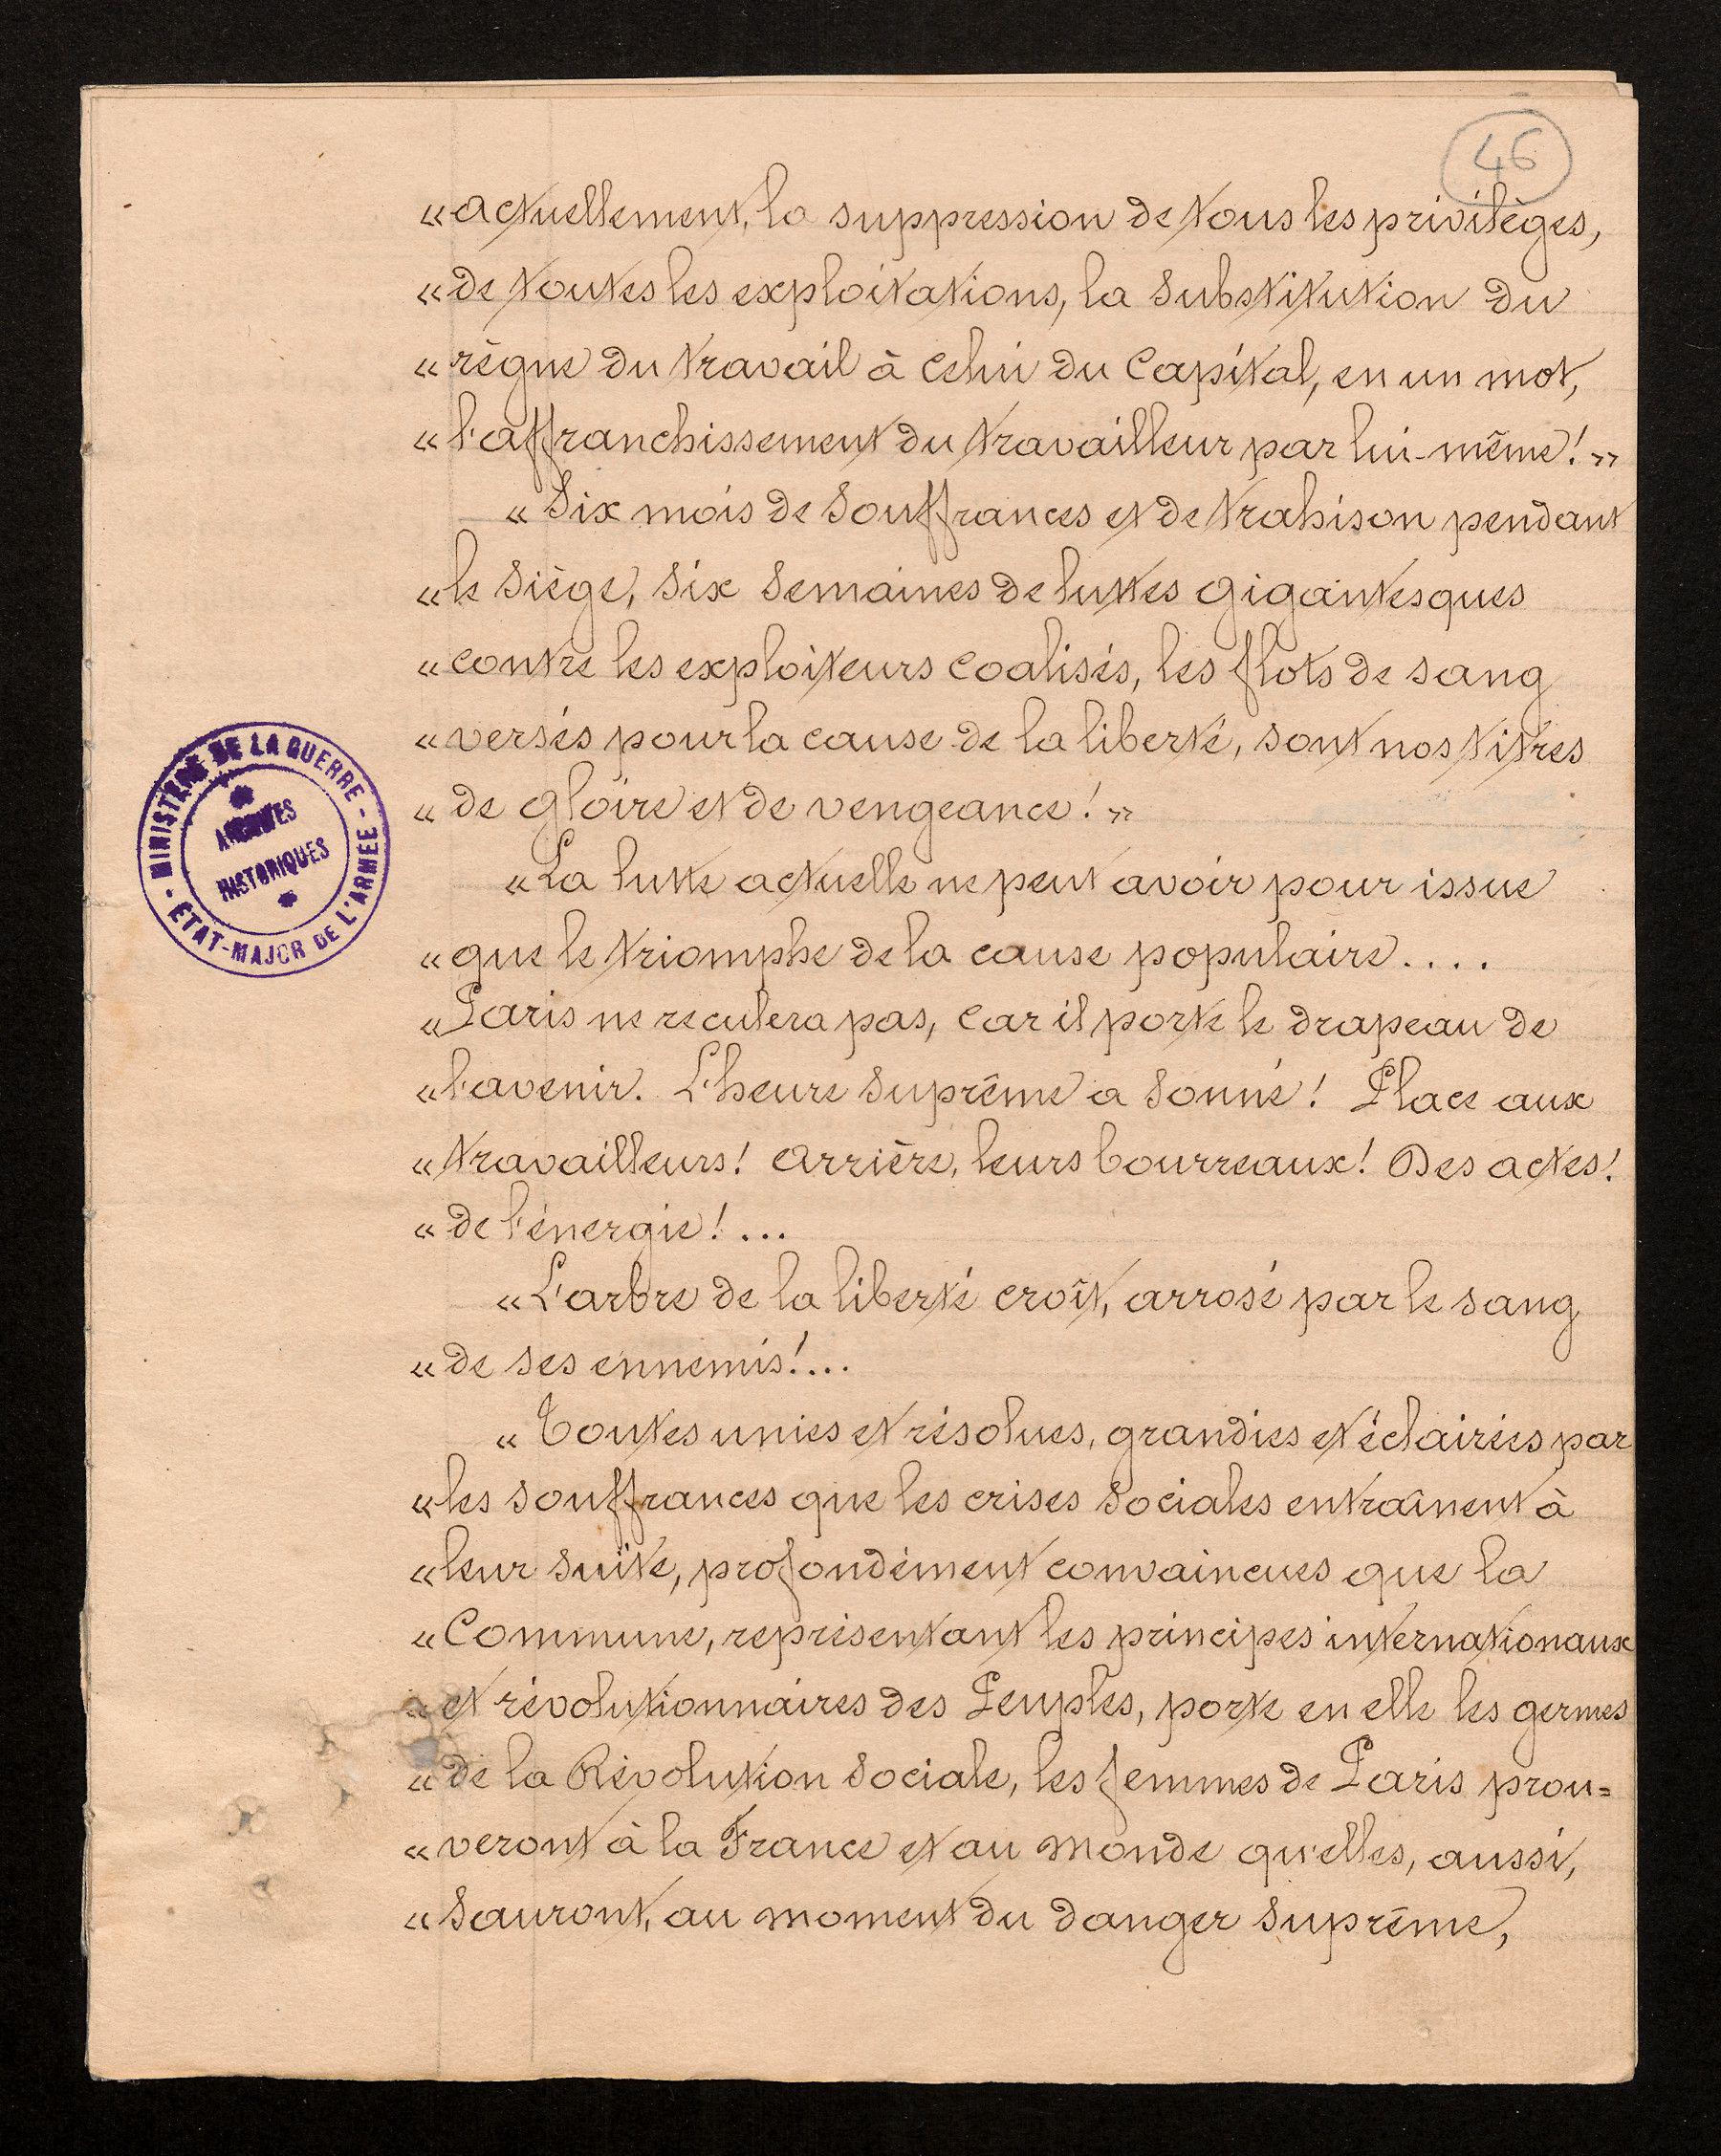 46
« actuellement, la suppression de tous les privilèges,
« de toutes les exploitations, la substitution du
« règne du travail à celui du Capital, en un mot,
« l'affranchissement du travailleur par lui-même! »
« Six mois de souffrances et de trahison pendant
« le siège, six semaines de luttes gigantesques
« contre les exploiteurs coalisés, les flots de sang
« versés pour la cause de la liberté, sont nos titres
« de gloire et de vengeance! »
« La lutte actuelle ne peut avoir pour issue
« que le triomphe de la cause populaire....
« Paris ne reculera pas, car il porte le drapeau de
« l'avenir. L'heure suprême a sonné! Place aux
« travailleurs! arrière, leurs bourreaux! Des actes!
« de l'énergie!...
« L'arbre de la liberté croît, arrosé par le sang
« de ses ennemis!...
« Toutes unies et résolues, grandies et éclairées par
« les souffrances que les crises sociales entraînent à
« leur suite, profondément convaincues que la
« Commune, représentant les principes internationaux
« et révolutionnaires des Peuples, porte en elle les germes
« de la Révolution sociale, les femmes de Paris prou=
« veront à la France et au monde qu'elles, aussi,
« sauront, au moment du danger suprême,
MINISTÈRE DE LA GUERRE -
ARCHIVES
HISTORIQUES
- ETAT-MAJOR DE L'ARMÉE